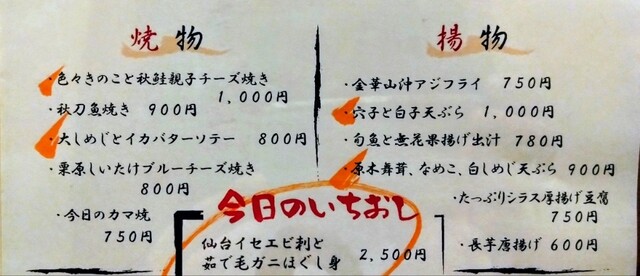 焼物
・色々きのこと秋鮭親子チーズ焼き
1,000円
・秋刀魚焼き 900円
・大しめじとイカバターソテー 800円
・栗原しいたけブルーチーズ焼き
800円
・今日のカマ焼
750円
揚物
・金華山沖アジフライ 750円
・穴子と白子天ぷら 1,000円
・旬魚と無花果揚げ出汁 780円
・原木舞茸、なめこ、白しめじ天ぷら 900円
・たっぷりシラス厚揚げ豆腐
750円
・長芋唐揚げ 600円
今日のいちおし
仙台イセエビ刺と
茹で毛ガニほぐし身 2,500円